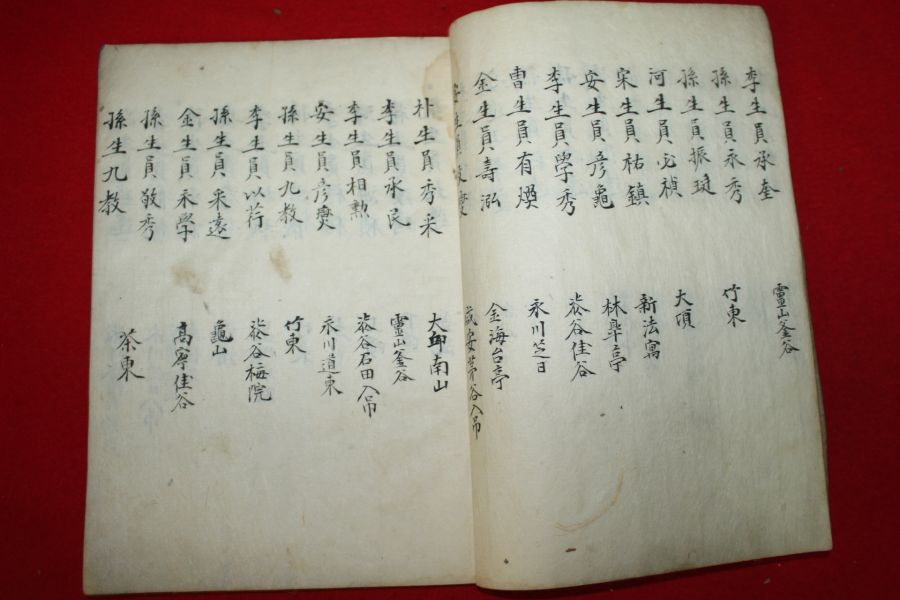 李生員承奎 靈山釜谷
孫生員永秀 竹東
孫生員振 大項
河生員 新法寓
宋生員祐鎮 林亭
安生員彦龜 谷佳谷
李生員學秀 永川芝日
曺生員有煥
金生員壽泓 金海台亭
安谷入吊
朴生員秀采 大邱南山
李生員承民 靈山釜谷
李生員相勲 谷石田入吊
安生員彦 永川道東
孫生員九教 竹東
李生員以荇 谷梅院
孫生員采遠 龜山
金生員永學 高寧佳谷
孫生員敬秀
孫生九教 茶東